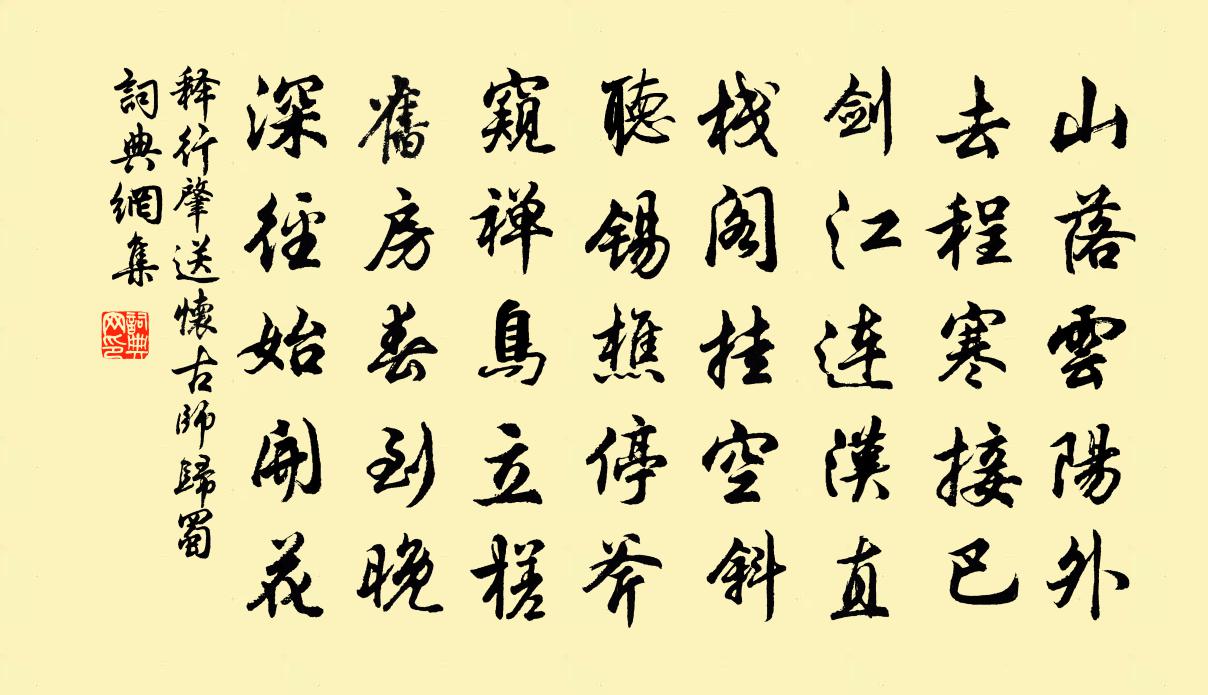 山落雲陽外
去程寒接巴
劍江連漢直
棧閣挂空斜
聽錫樵停斧
窺禅鳥立槎
舊房春到晚
深徑始開花
释行肇送懷古師歸蜀
詞典網集
詞典网印